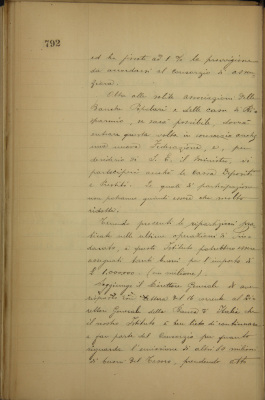 792
ed ha fissato ad 1 % la provvigione
da accordarsi al Consorzio è
Oltre alle solite associazioni delle
Banche Popolari e delle Casse di Ri-
sparmio, se sarà possibile, dovrà
entrare questa volta in consorzio
Federazione, e, per
desiderio di S. E. il Ministro,
parteciperà anche la Cassa Depositi
e Prestiti. Le quote di partecipazione
non potranno quindi essere che molto
ridotte.
Tenendo presenti le ripartizioni pra-
ticate nelle ultime operazioni
a questo Istituto potrebbero essere
assegnati buoni per l'importo di
£ 1.000.000.- (un milione).
Soggiunge il Direttore Generale di aver
risposto con lettera del 16 corrente al Di-
rettore Generale della Banca d'Italia che
il nostro Istituto è ben lieto di continuare
a far parte del Consorzio per quanto
riguarda l'emissione di altri 50 milioni
di buoni del Tesoro, prendendo atto